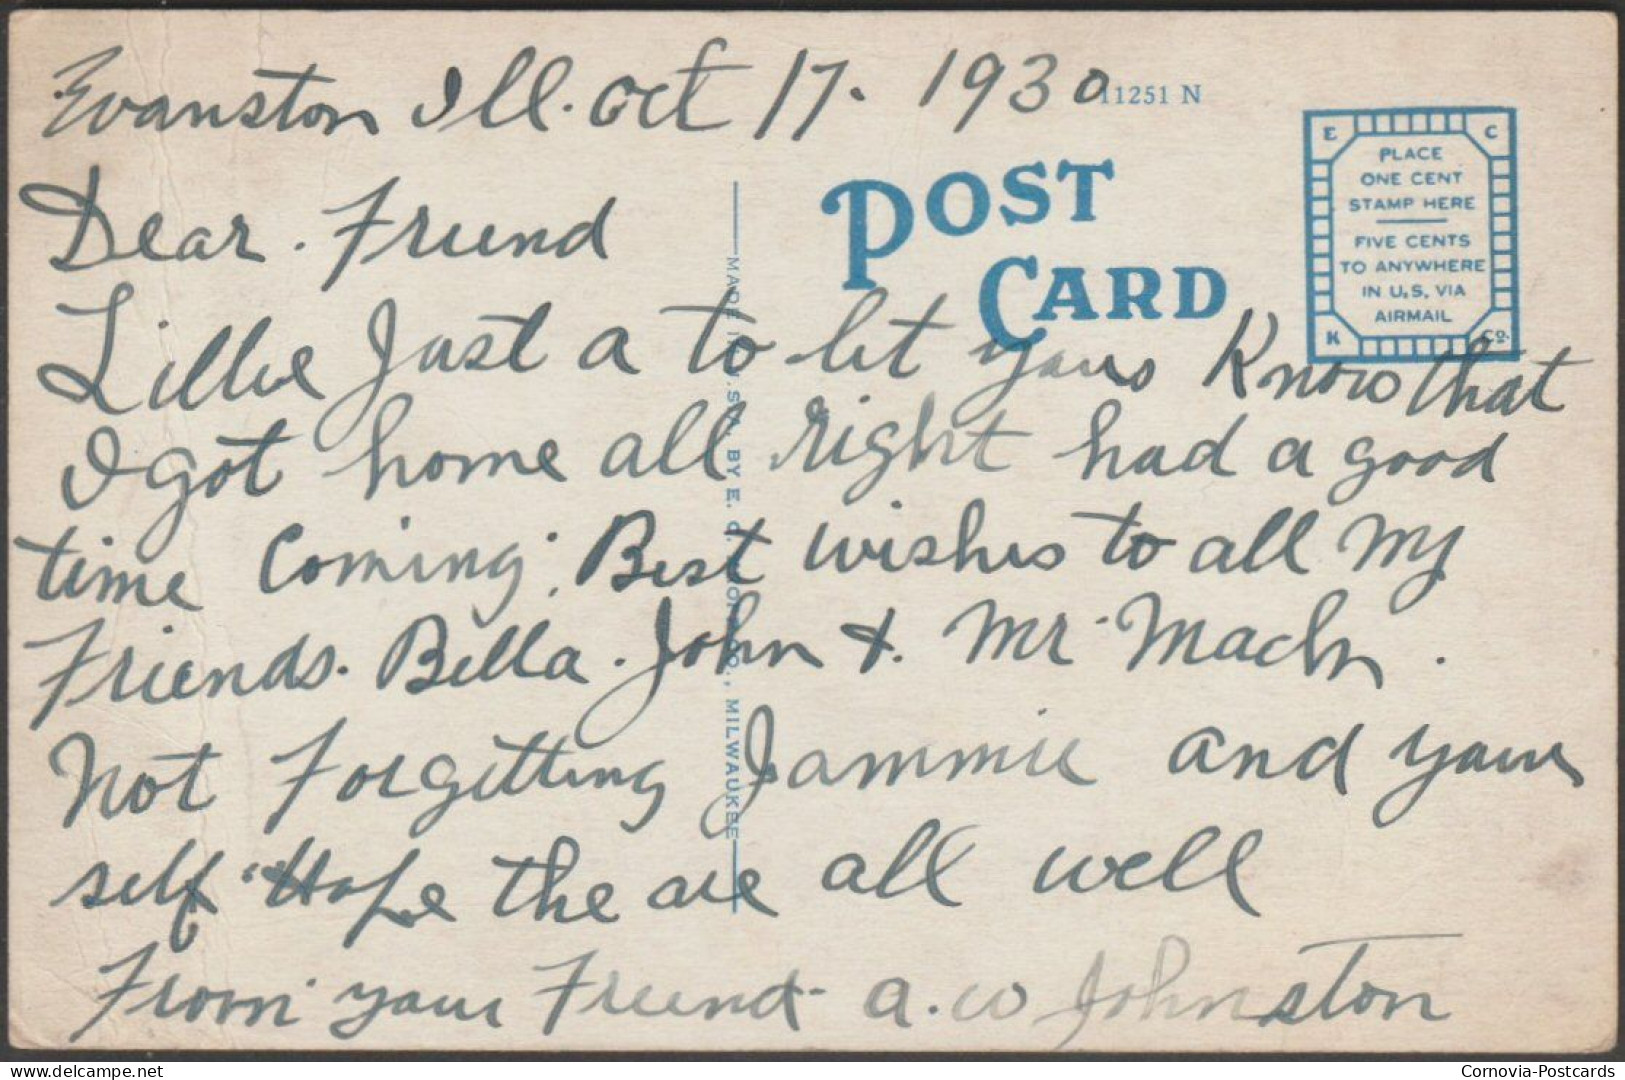 Evanston Ill. Oct 17. 1930
11251 N
Dear. Friend
POST
CARD
E C
PLACE
ONE CENT
STAMP HERE
FIVE CENTS
TO ANYWHERE
IN U.S. VIA
AIRMAIL
K Co.
Lillie Just a to let yous Know that
I got home all right had a good
time Coming. Best wishes to all My
Friends. Bella. John &. Mr. Machn.
Not Forgetting Jammie and your
self Hope the are all well
From your Friend. A. W Johnston
MADE IN U.S.A. BY E. C. KROPP CO., MILWAUKEE
delcampe.net
Cornovia-Postcards